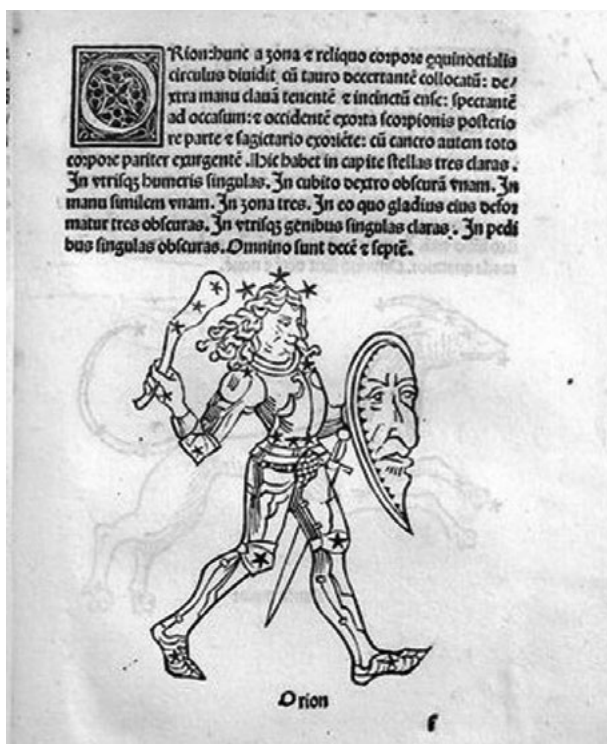 ORion: hunc a zona ⁊ reliquo corpore equinoctialis
circulus diuidit cũ tauro decertantẽ collocatũ: de/
xtra manu clauã tenentẽ ⁊ incinctũ ense: spectantẽ
ad occasum: ⁊ occidentẽ exorta scorpionis posterio
re parte ⁊ sagictario exoriẽte: cũ cancro autem toto
corpore pariter exurgentẽ. Hic habet in capite stellas tres claras.
In vtrisqꝫ humeris singulas. In cubito dextro obscurã vnam. In
manu similem vnam. In zona tres. In eo quo gladius eius defor
matur tres obscuras. In vtrisqꝫ genibus singulas claras. In pedi
bus singulas obscuras. Omnino sunt decẽ ⁊ septẽ.
Orion
f